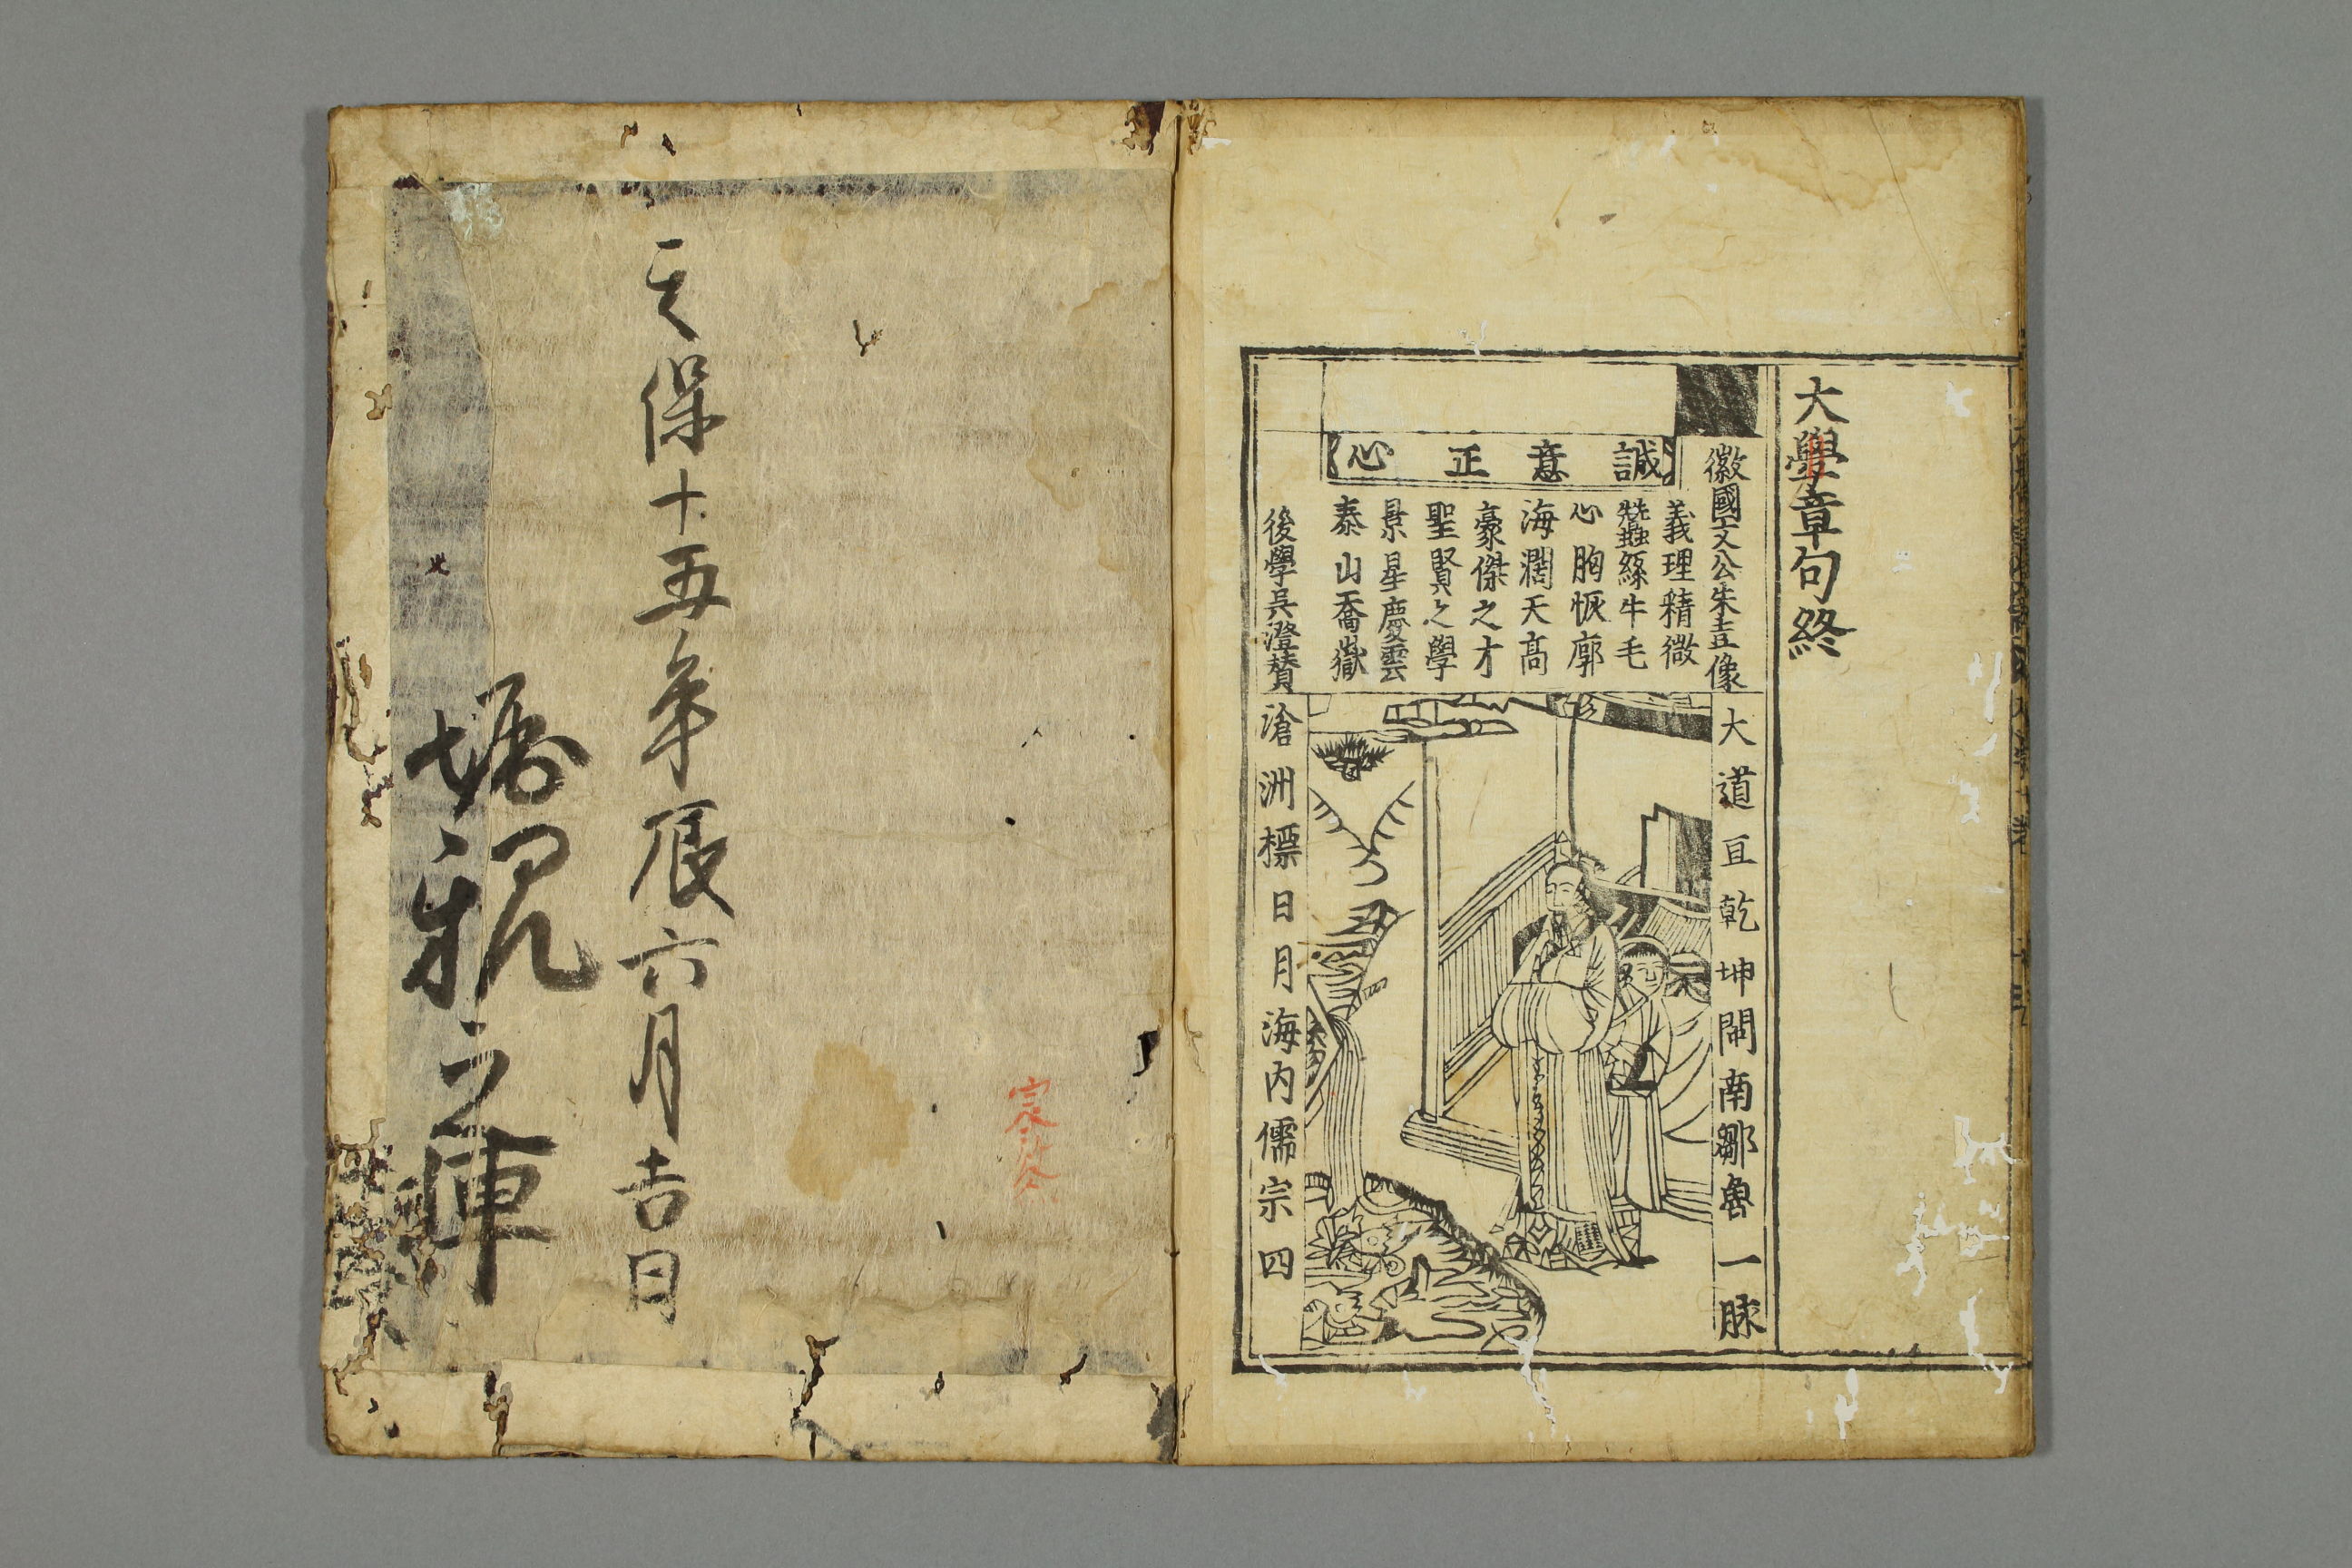 大學章句終
徽國文公朱熹像
誠意正心
義理精微
蠶絲牛毛
心胸恢廓
海濶天高
豪傑之才
聖賢之學
景星慶雲
泰山喬嶽
後學吳澄賛
大道亘乾坤閩南鄒魯一脉
滄洲標日月海内儒宗四
天保十五年辰六月吉日
之庫